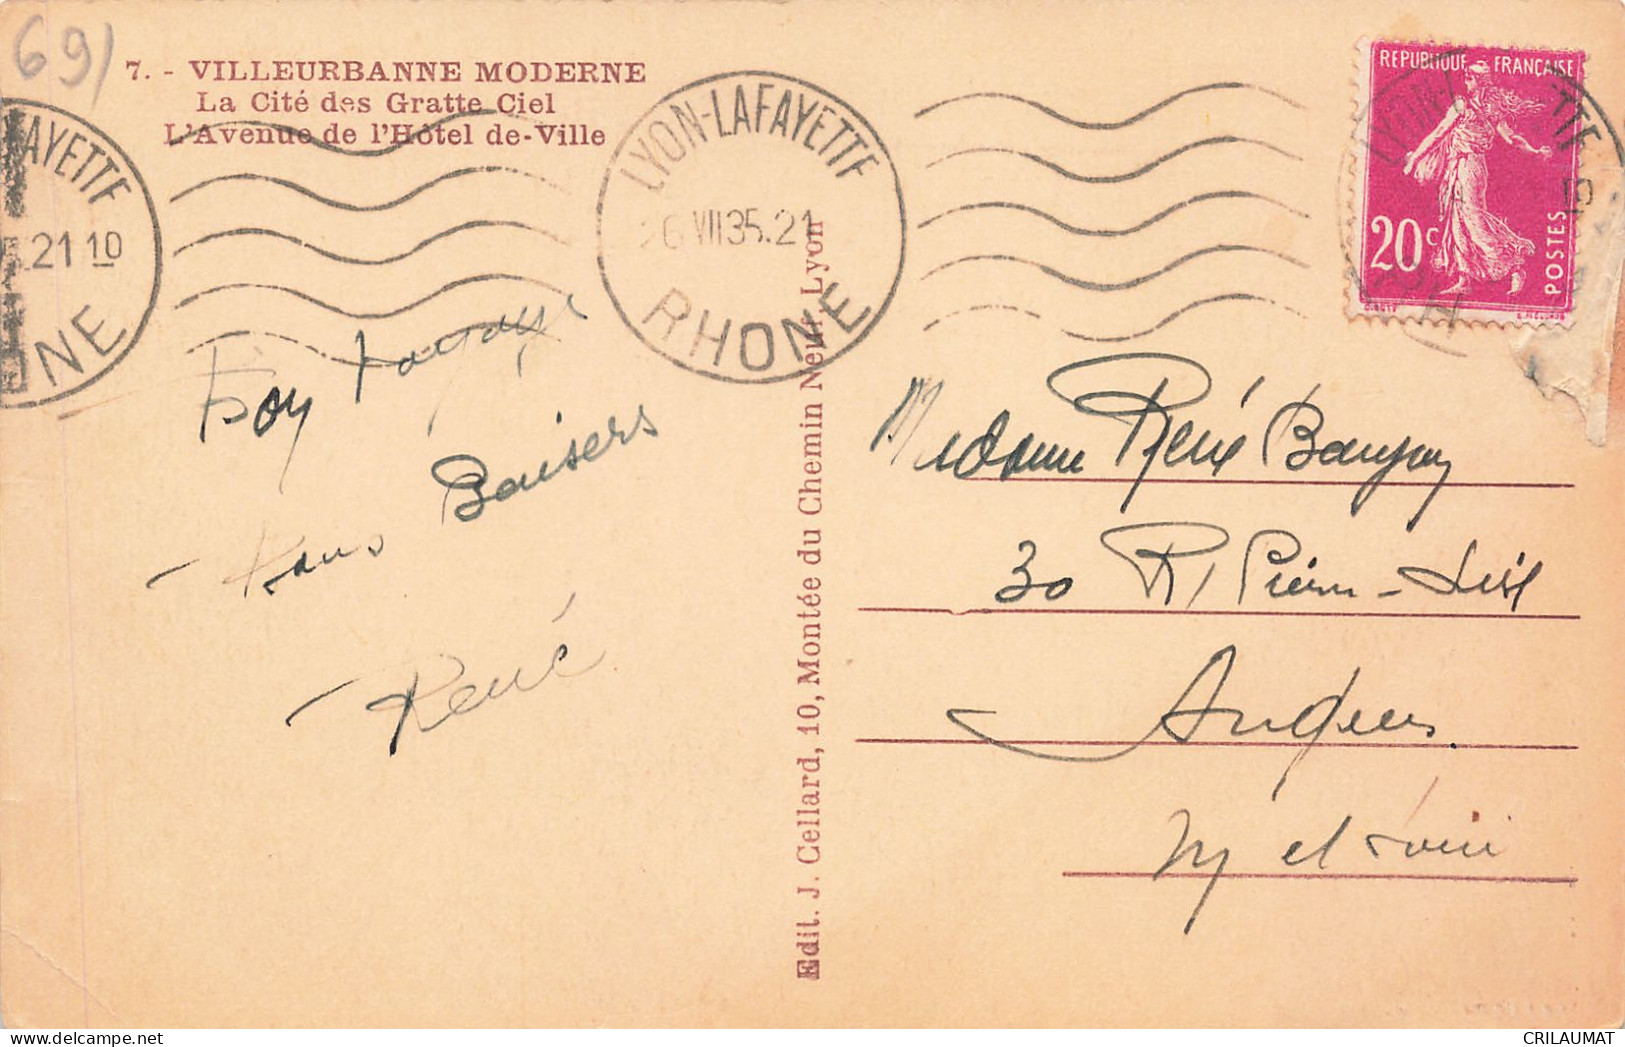 69
7. - VILLEURBANNE MODERNE
La Cité des Gratte Ciel
L'Avenue de l'Hôtel de-Ville
AYETTE
.21 10
ONE
LYON-LAFAYETTE
26 VII 35.21
RHONE
REPUBLIQUE FRANÇAISE
20c
POSTES
LYON-L TTE
10
RH
Bon
Baisers
René
Edit. J. Cellard, 10, Montée du Chemin Neuf, Lyon
Madame René
30 R. Pierre-Lise
Angers
M et Loire
CRILAUMAT